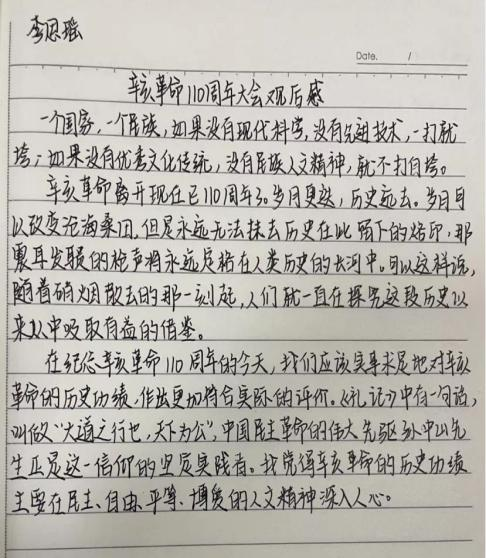 李思瑶
Date. /
辛亥革命110周年大会观后感
一个国家,一个民族,如果没有现代科学,没有先进技术,一打就
垮;如果没有优秀文化传统,没有民族人文精神,就不打自垮。
辛亥革命离开现在已110周年了。岁月更迭,历史远去。岁月可
以改变沧海桑田,但是永远无法抹去历史在此留下的烙印,那
震耳发聩的枪声将永远定格在人类历史的长河中。可以这样说,
随着硝烟散去的那一刻起,人们就一直在探究这段历史以
来从中吸取有益的借鉴。
在纪念辛亥革命110周年的今天,我们应该实事求是地对辛亥
革命的历史功绩,作出更加符合实际的评价。《礼记》中有一句话,
叫做“大道之行也,天下为公”,中国民主革命的伟大先驱孙中山先
生正是这一信仰的坚定实践者。我觉得辛亥革命的历史功绩
主要在民主、自由、平等、博爱的人文精神深入人心。